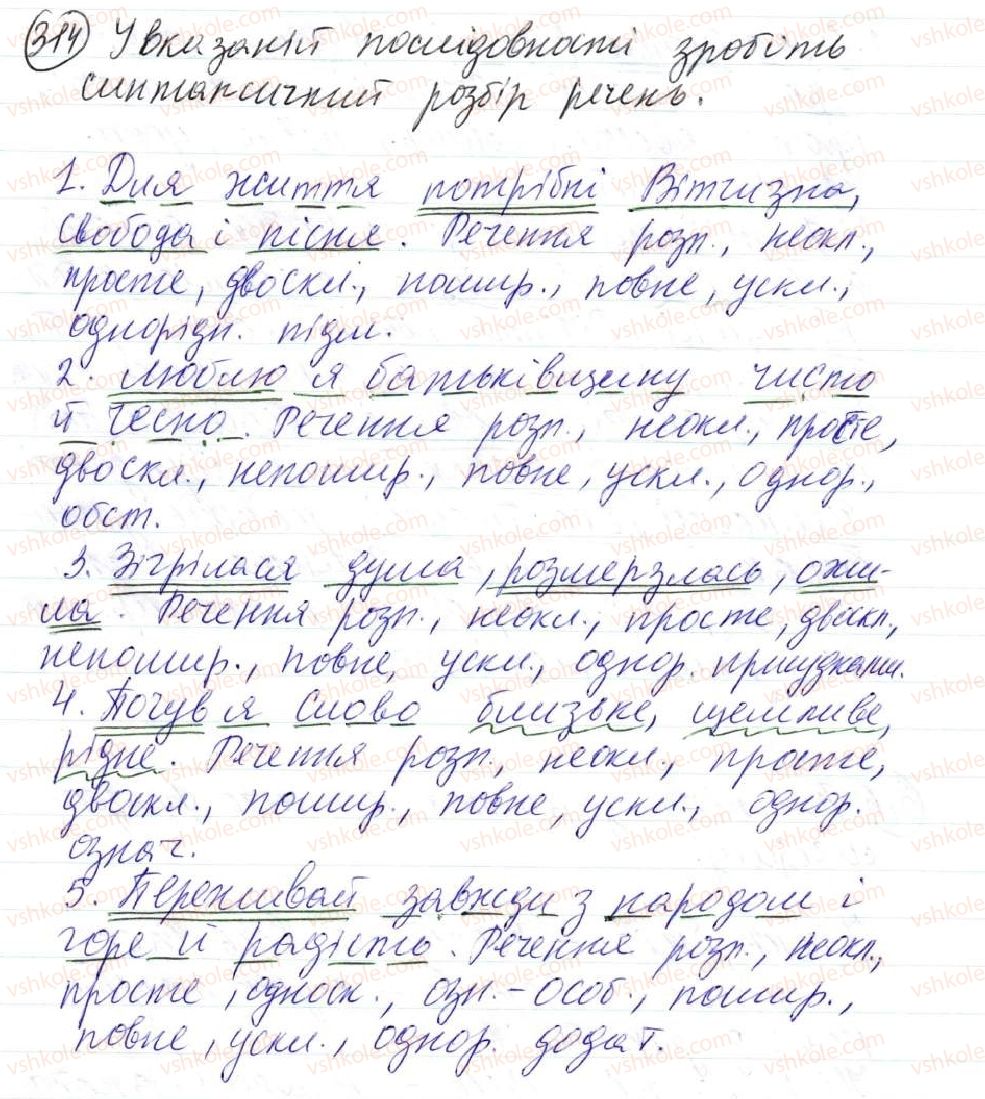 314 У вказаній послідовності зробіть
синтаксичний розбір речень.
1. Для життя потрібні Вітчизна,
свобода і пісня. Речення розп., неокл.,
просте, двоскл., пошир., повне, ускл.,
однорідн. підм.
2. Люблю я батьківщину чисто
й чесно. Речення розп., неокл., просте,
двоскл., непошир., повне, ускл., однор.,
обст.
3. Зігрілася душа, розмерзлась, ожи-
ла. Речення розп., неокл., просте, двоскл.,
непошир., повне, ускл., однор. присудками.
4. Почув я слово близьке, щемливе,
рідне. Речення розп., неокл., просте,
двоскл., пошир., повне, ускл., однор.
означ.
5. Переживай завжди з народом і
горе й радість. Речення розп., неокл.,
просте, односк., озн.-особ., пошир.,
повне, ускл., однор. додат.
vshkole.com